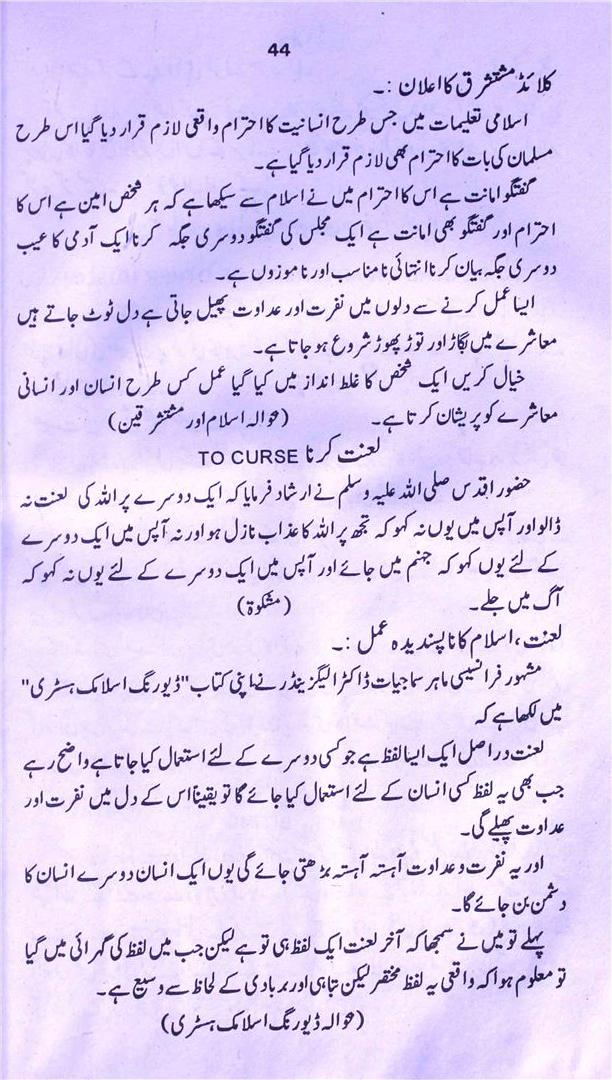 44
کلائڈ مستشرق کا اعلان :۔
اسلامی تعلیمات میں جس طرح انسانیت کا احترام واقعی لازم قرار دیا گیا اس طرح
مسلمان کی بات کا احترام بھی لازم قرار دیا گیا ہے۔
گفتگو امانت ہے اس کا احترام میں نے اسلام سے سیکھا ہے کہ ہر شخص امین ہے اس کا
احترام اور گفتگو بھی امانت ہے ایک مجلس کی گفتگو دوسری جگہ کرنا ایک آدمی کا عیب
دوسری جگہ بیان کرنا انتہائی نامناسب اور ناموزوں ہے۔
ایسا عمل کرنے سے دلوں میں نفرت اور عداوت پھیل جاتی ہے دل ٹوٹ جاتے ہیں
معاشرے میں بگاڑ اور توڑ پھوڑ شروع ہو جاتا ہے۔
خیال کریں ایک شخص کا غلط انداز میں کیا گیا عمل کس طرح انسان اور انسانی
معاشرے کو پریشان کرتا ہے۔ (حوالہ اسلام اور مستشرقین)
لعنت کرنا TO CURSE
حضور اقدس صلی اللہ علیہ وسلم نے ارشاد فرمایا کہ ایک دوسرے پر اللہ کی لعنت نہ
ڈالو اور آپس میں یوں نہ کہو کہ تجھ پر اللہ کا عذاب نازل ہو اور نہ آپس میں ایک دوسرے
کے لئے یوں کہو کہ جہنم میں جائے اور آپس میں ایک دوسرے کے لئے یوں نہ کہو کہ
آگ میں جلے۔ (مشکوۃ)
لعنت، اسلام کا ناپسندیدہ عمل :۔
مشہور فرانسیسی ماہر سماجیات ڈاکٹر الیگزینڈر نے اپنی کتاب "ڈیورنگ اسلامک ہسٹری"
میں لکھا ہے کہ
لعنت دراصل ایک ایسا لفظ ہے جو کسی دوسرے کے لئے استعمال کیا جاتا ہے واضح رہے
جب بھی یہ لفظ کسی انسان کے لئے استعمال کیا جائے گا تو یقیناً اس کے دل میں نفرت اور
عداوت پھیلے گی۔
اور یہ نفرت و عداوت آہستہ آہستہ بڑھتی جائے گی یوں ایک انسان دوسرے انسان کا
دشمن بن جائے گا۔
پہلے تو میں نے سمجھا کہ آخر لعنت ایک لفظ ہی تو ہے لیکن جب میں لفظ کی گہرائی میں گیا
تو معلوم ہوا کہ واقعی یہ لفظ مختصر لیکن تباہی اور بربادی کے لحاظ سے وسیع ہے۔
(حوالہ ڈیورنگ اسلامک ہسٹری)